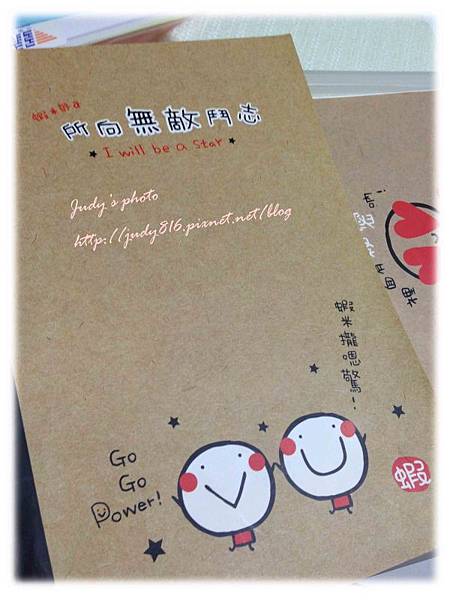 蝦米郎の
所向無敵鬥志
★ I will be a star ★
Judy's photo
http://judy816.pixnet.net/blog
蝦米攏嗯驚!
Go
Go
Power!
蝦